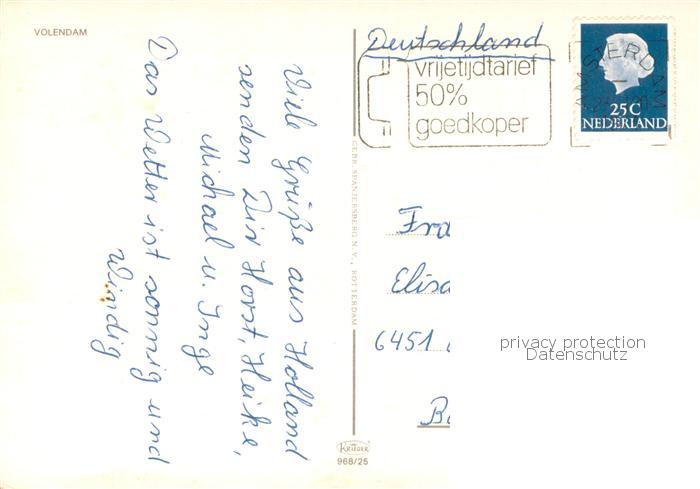 VOLENDAM
Viele Grüße aus Holland
senden Dir Horst, Heike,
Michael u. Inge
Das Wetter ist sonnig und
windig
GEBR. SPANJERSBERG N.V., ROTTERDAM
KRÜGER
968/25
Deutschland
vrijetijdtarief
50%
goedkoper
AMSTERDAM
25C
NEDERLAND
Fra
Elisa
6451
privacy protection
Datenschutz